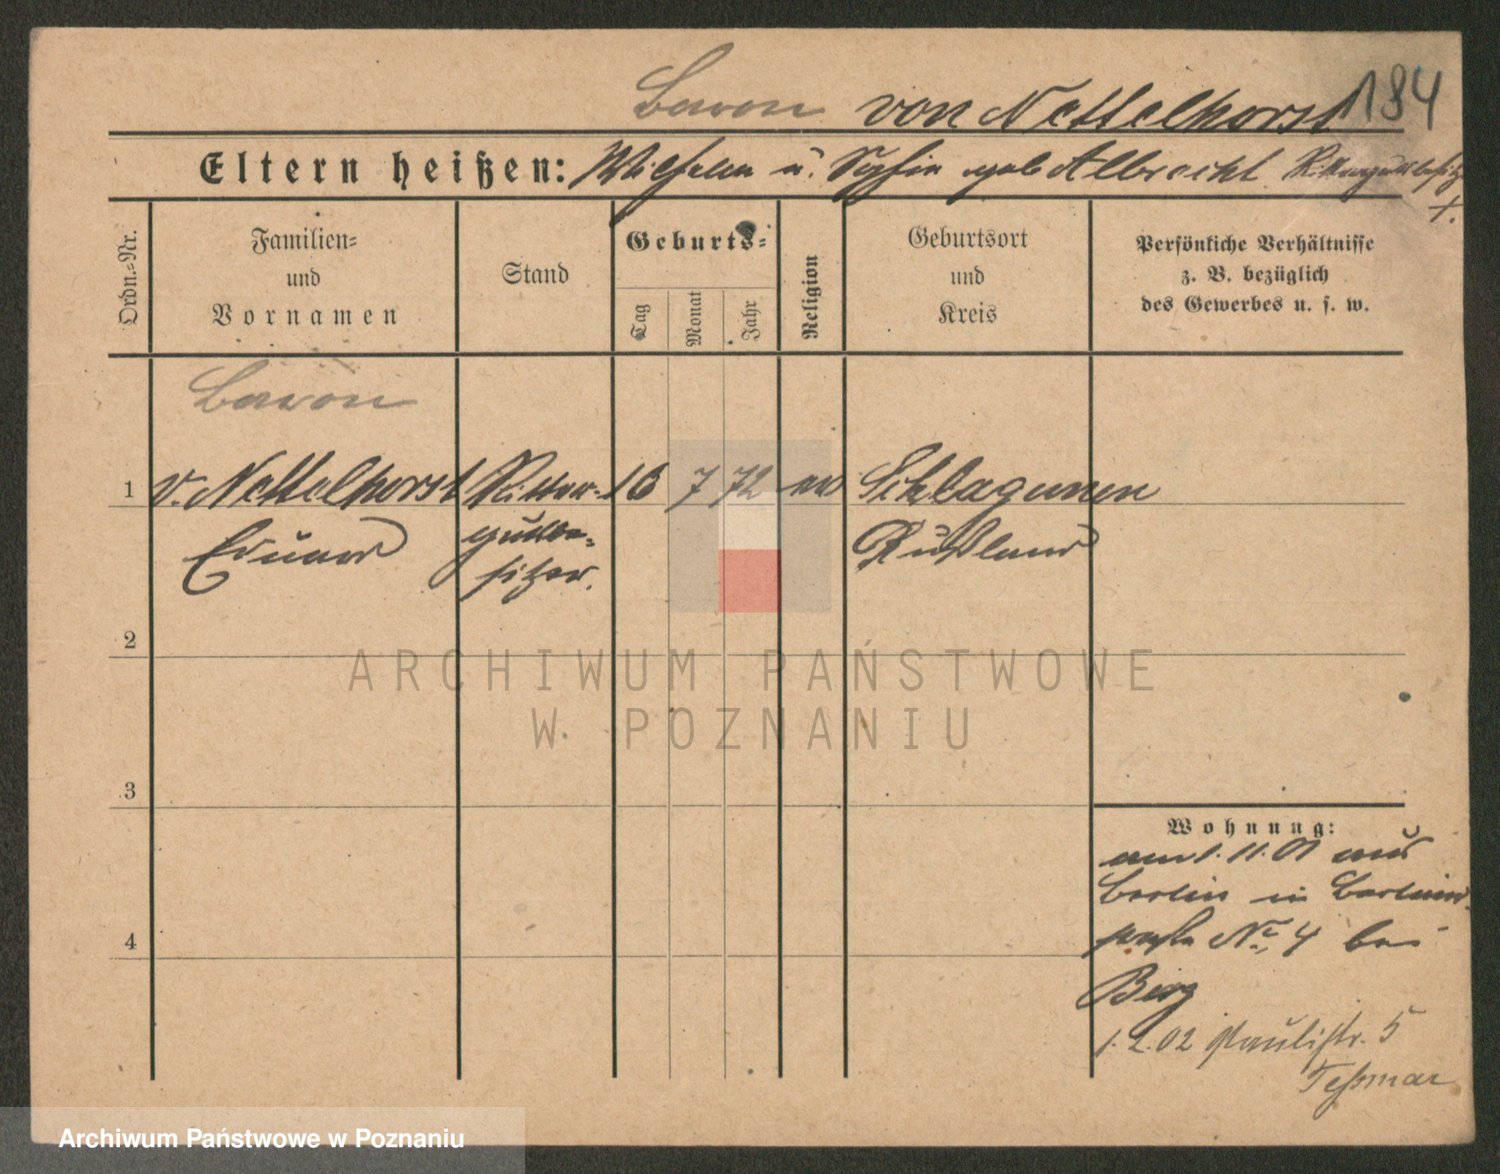 Baron von Nettelhorst 184
Eltern heißen: Wilhelm u. Sophie geb Albrecht Rittergutsbesitzer
†.
Ordn.=Nr.
Familien=
und
Vornamen
Stand
Geburts=
Tag
Monat
Jahr
Religion
Geburtsort
und
Kreis
Persönliche Verhältnisse
z. B. bezüglich
des Gewerbes u. s. w.
Baron
1 v. Nettelhorst Ritter- 16 7 72 ev Schlagunen
Eduard gutsbe= Rußland
sitzer.
2
3
4
Wohnung:
am 1. 11. 01 aus
Berlin in Berliner
straße No. 4 bei
Berg
1. 2. 02 Paulistr. 5
Teßmar
ARCHIWUM PAŃSTWOWE
W POZNANIU
Archiwum Państwowe w Poznaniu